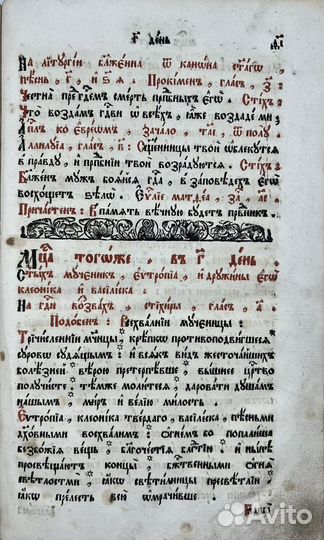 г҃ день
На литоргии блаженна ѿ канона стагѡ,
пѣснь, г҃, и ѕ҃я. Прокименъ, гласъ, з҃:
Честна пре гдемъ смерть прпбныхъ егѡ. Стіхъ:
Что воздамъ гдви ѡ всѣхъ, ꙗже воздаде ми:
Апⷭлъ ко евреѡмъ, зачало, ѿ полꙋ
Аллилꙋіа, гласъ, в҃: Сщенницы твои ѡблекꙋтся
в правдꙋ, и прпбніи твои возрадꙋются. Стіхъ:
Блаженъ мꙋжъ бояися гда, в заповѣдехъ егѡ
восхощетъ ѕѣлѡ. Еѵліе матѳеа, за,
Причастенъ: В память вѣчнꙋю бꙋдетъ првникъ.
Мца тогѡже, въ г҃ день.
Стыхъ мꙋченикъ, еѵтропіа, и дрꙋжины егѡ
клеоніка и васіліска:
На гди возвахъ, стіхиры, гласъ, а҃.
Подобенъ: Всехвалніи мꙋченицы:
Тричисленніи мчницы, крѣпкѡ противоподвигшеся
сꙋровѡ сꙋдящымъ: и всякъ видъ жесточаишихъ
болѣзнеи вѣрою претерпѣвше, вышнее цртво
полꙋчисте. тѣмже молитеся, даровати дꙋшамъ
нашымъ миръ и велію милость.
Еѵтропіа, клеоніка твердаго, васіліска, пѣсньми
дховными восхвалимъ: огнемъ бо попалиша
безбожія вещь, благочестія блгтію: и нынѣ
просвѣщаютъ концы, бжтвенными огня
свѣтлостми, ꙗкѡ свѣтилницы пресвѣтліи,
ꙗкѡ прелесть всю ѡмрачивше.
Avito